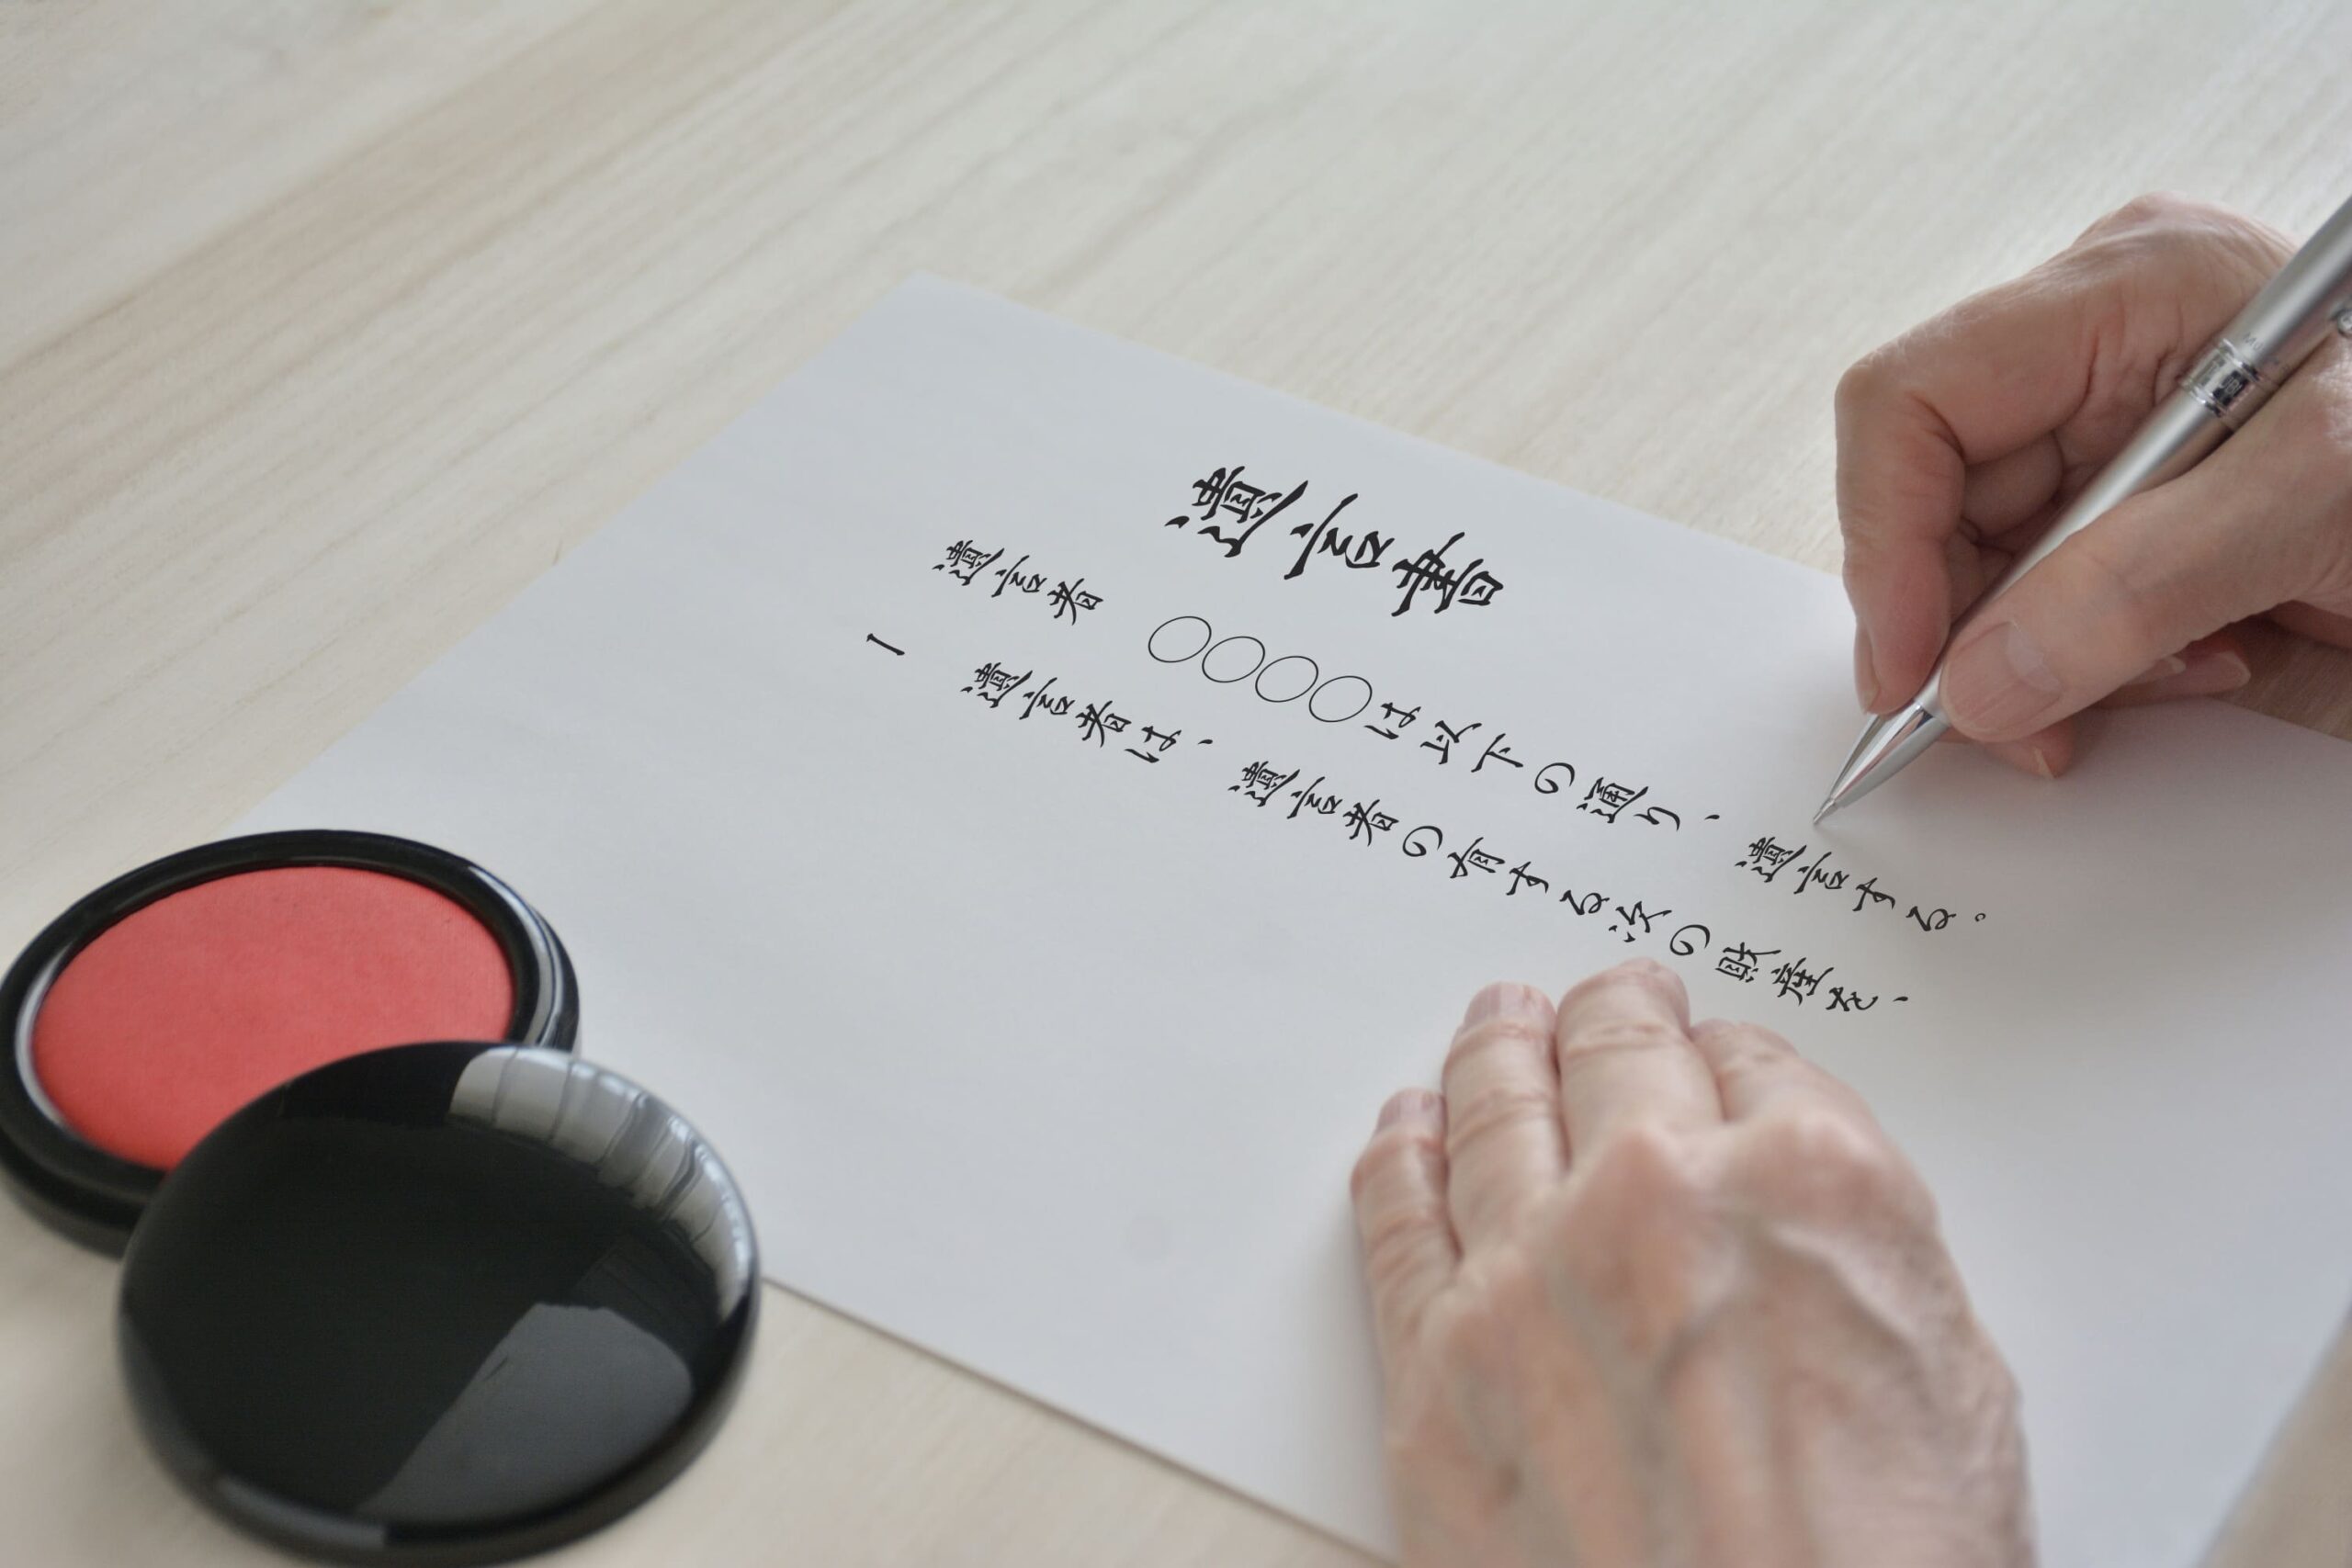 遺言書
遺言者　〇〇〇〇は以下の通り、遺言する。
一　遺言者は、遺言者の有する次の財産を、